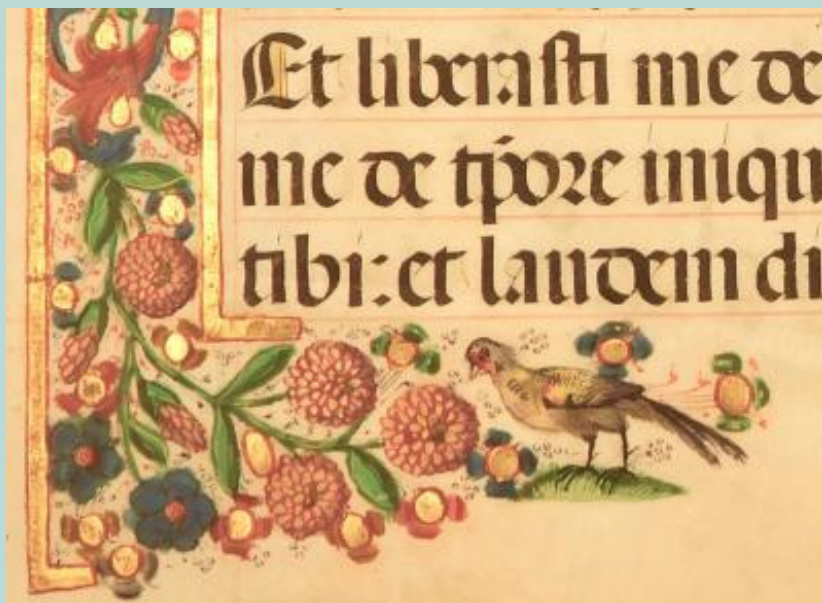 Et liberasti me de
me de tp̄ore iniqu
tibi: et laudem di